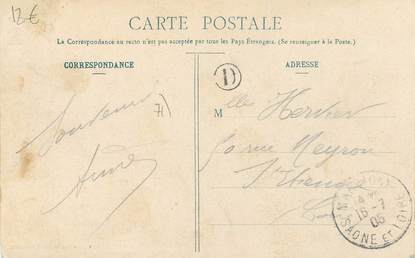 12€
CARTE POSTALE
La Correspondance au recto n'est pas acceptée par tous les Pays Etrangers. (Se renseigner à la Poste.)
CORRESPONDANCE
ADRESSE
D
71
Souvenir
Mlle
rue Neyron
St Etienne
16-7
05
SAONE ET LOIRE